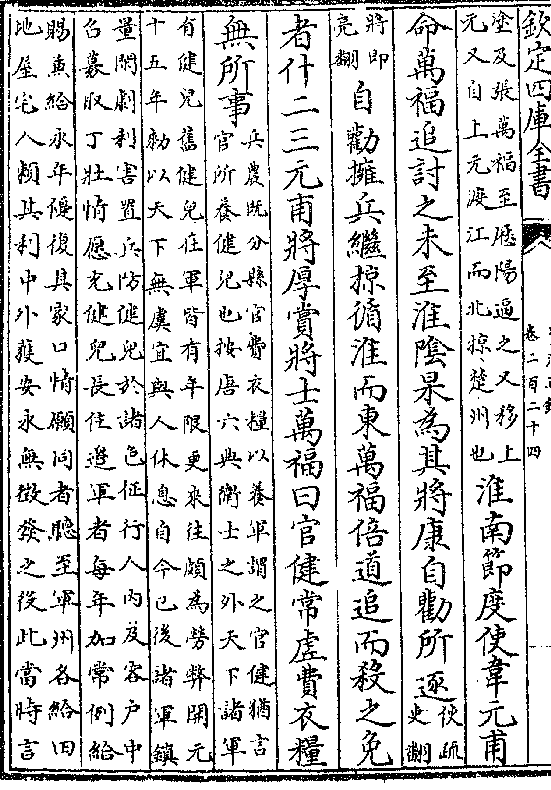 欽定四庫全書
卷二百二十四
塗及張萬福至歷陽過之又移上
元又自上元渡江而北掠楚州也
淮南節度使韋元甫
命萬福追討之未至淮陰杲為其將康自勸所逐
佽疏
史翻
將即
亮翻
自勸擁兵繼掠循淮而東萬福倍道追而殺之免
者什二三元甫將厚賞將士萬福曰官健常虛費衣糧
無所事
兵農既分縣官費衣糧以養軍謂之官健猶言
官所養健兒也按唐六典衛士之外天下諸軍
有健兒舊健兒在軍皆有年限更來往頗為勞弊開元
十五年勑以天下無虞宜與人休息自今已後諸軍鎮
量閑劇利害置兵防健兒於諸色征行人內及客户中
召募取丁壯情愿充健兒長住邉軍者每年加常例給
賜兼給永年優復其家口情願同者聽至軍州各給田
地屋宅人頼其利中外獲安永無徴發之役此當時言